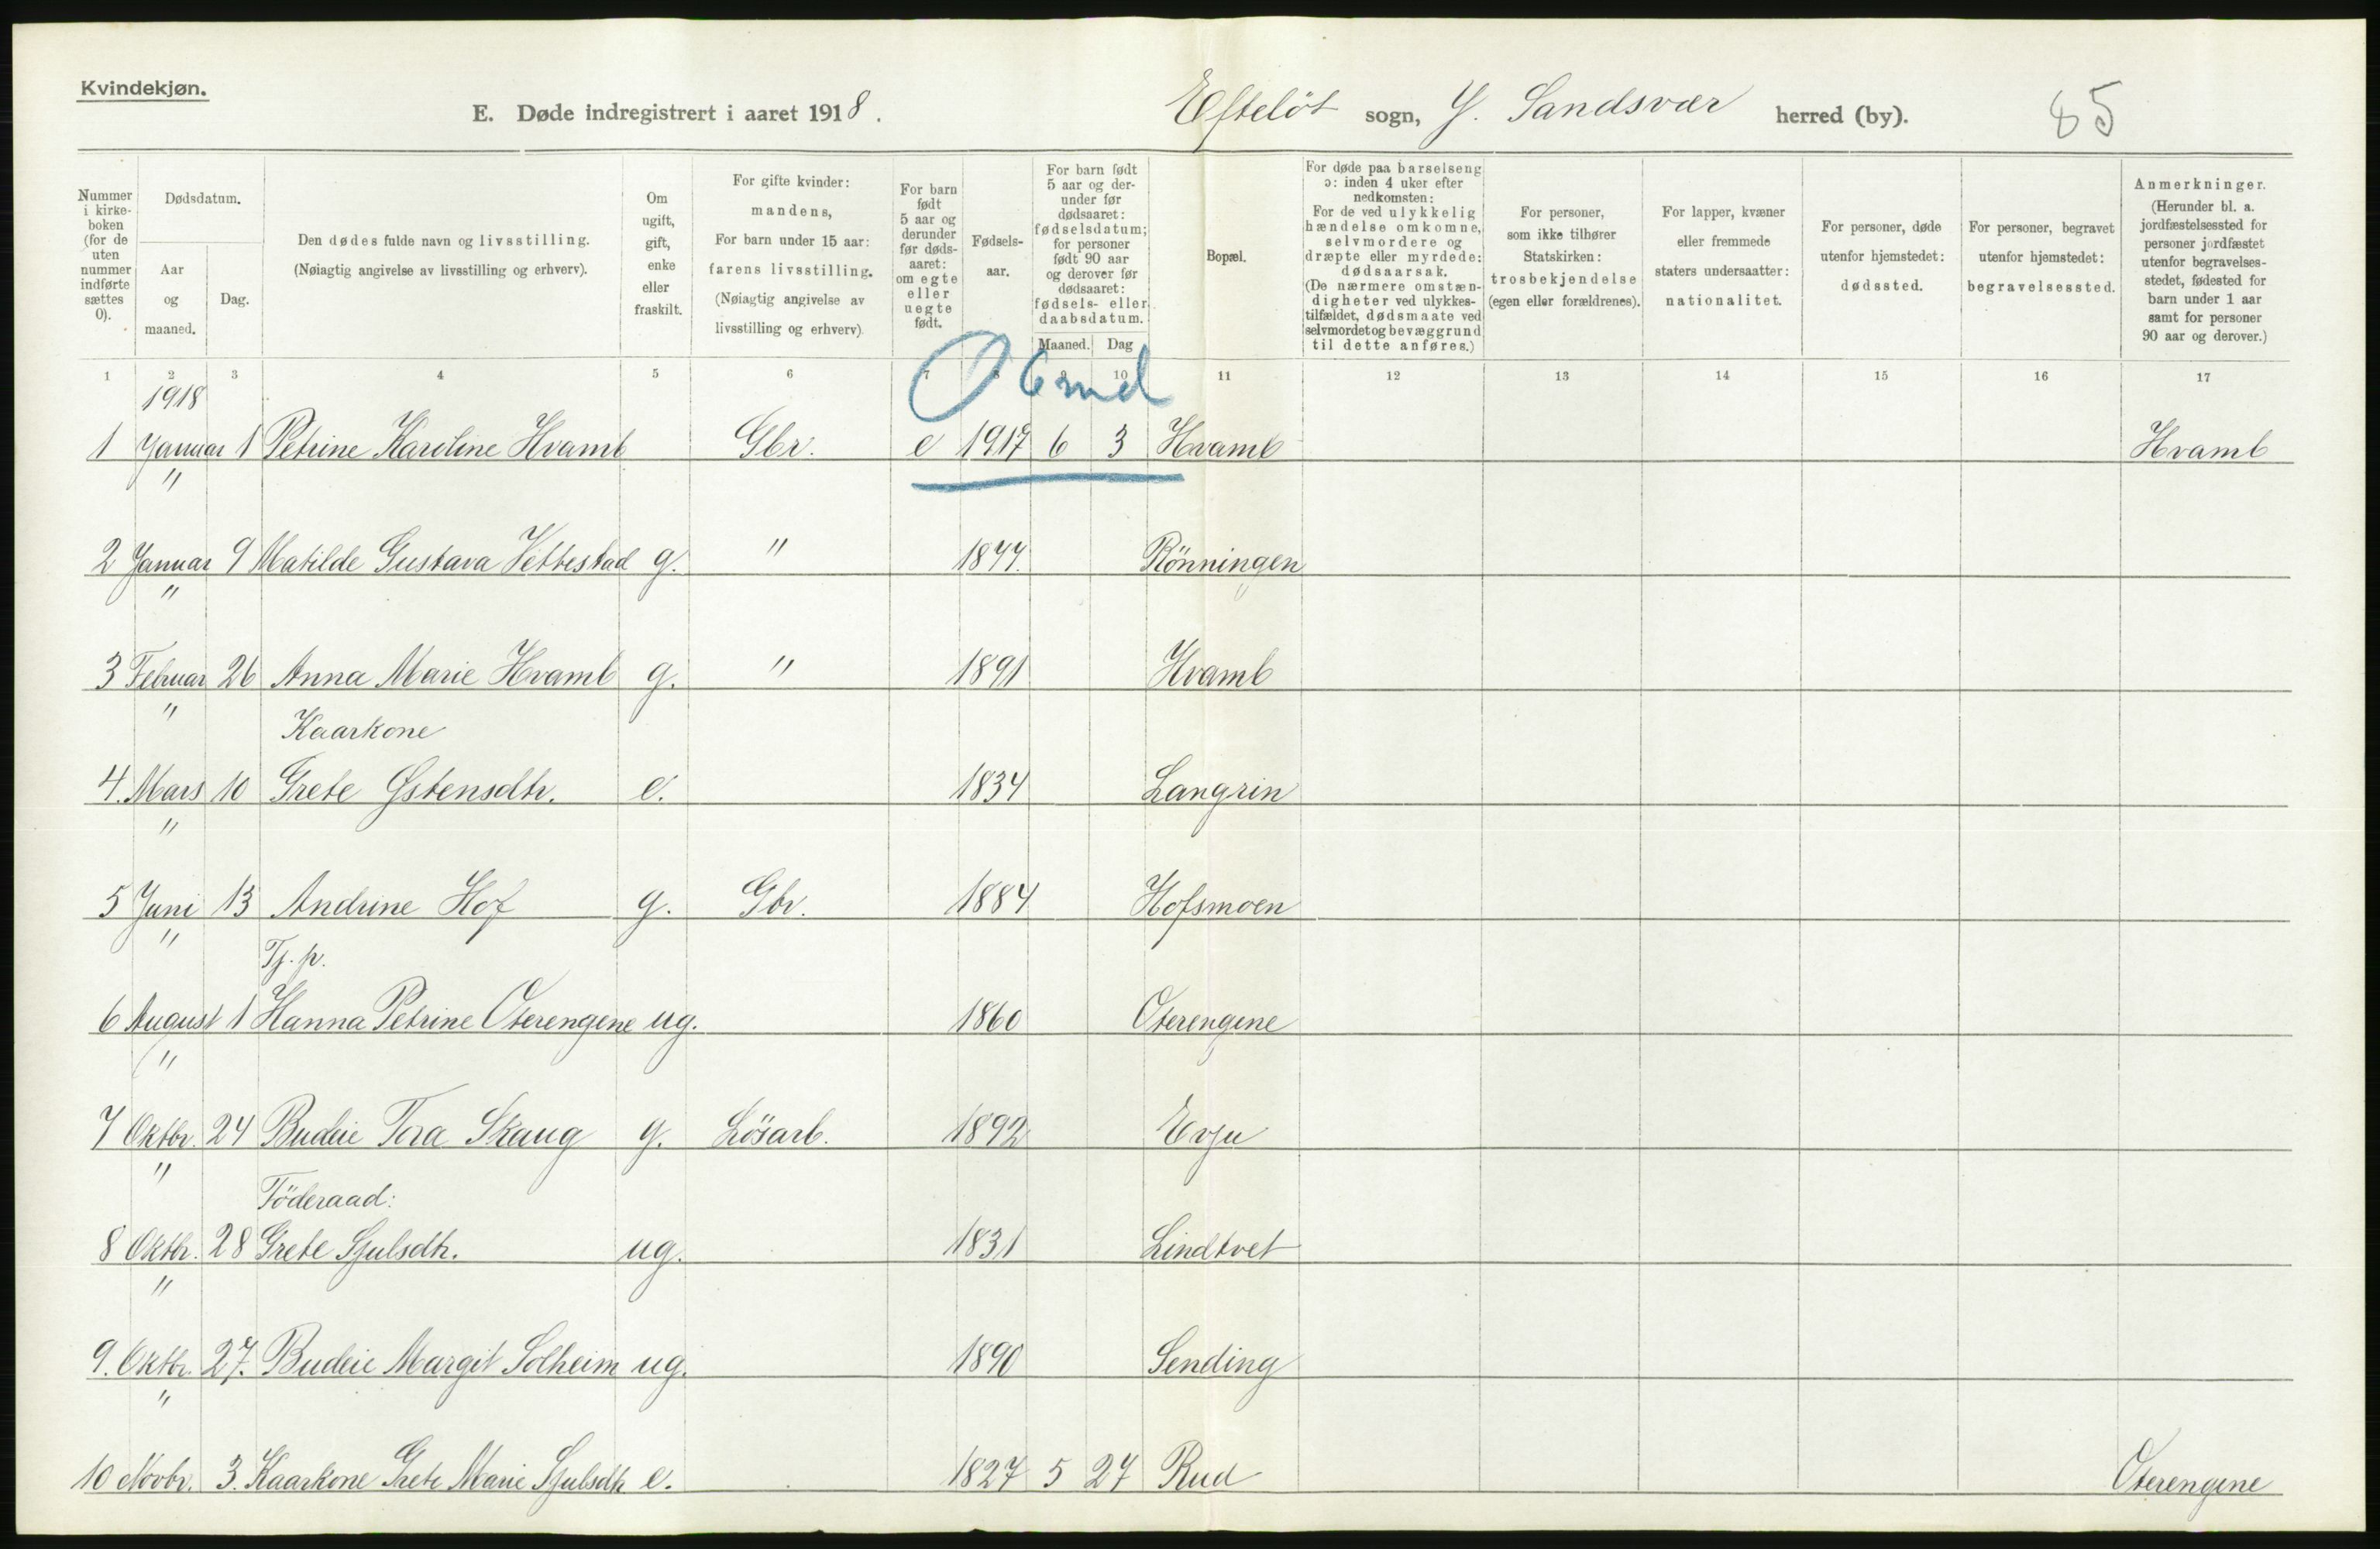 Kvindekjøn.
E. Døde indregistrert i aaret 1918.
Efteløt sogn, Y. Sandsvær herred (by).
85
Nummer i kirke-boken (for de uten nummer indførte sættes 0).
Dødsdatum.
Aar og maaned.
Dag.
Den dødes fulde navn og livsstilling.
(Nøiagtig angivelse av livsstilling og erhverv).
Om ugift, gift, enke eller fraskilt.
For gifte kvinder: mandens,
For barn under 15 aar: farens livsstilling.
(Nøiagtig angivelse av livsstilling og erhverv)
For barn født 5 aar og derunder før døds-aaret: om egte eller uegte født.
Fødsels-aar.
For barn født 5 aar og der-under før dødsaaret: fødselsdatum; for personer født 90 aar og derover før dødsaaret: fødsels- eller daabsdatum.
Maaned. Dag
Bopæl.
For døde paa barselseng ɔ: inden 4 uker efter nedkomsten:
For de ved ulykkelig hændelse omkomne, selvmordere og dræpte eller myrdede: dødsaarsak.
(De nærmere omstæn-digheter ved ulykkes-tilfældet, dødsmaate ved selvmordet og bevæggrund til dette anføres.)
For personer, som ikke tilhører Statskirken: trosbekjendelse (egen eller forældrenes).
For lapper, kvæner eller fremmede staters undersaatter: nationalitet.
For personer, døde utenfor hjemstedet: dødssted.
For personer, begravet utenfor hjemstedet: begravelsessted.
Anmerkninger.
(Herunder bl. a. jordfæstelsessted for personer jordfæstet utenfor begravelses-stedet, fødested for barn under 1 aar samt for personer 90 aar og derover.)
1 2 3 4 5 6 7 8 9 10 11 12 13 14 15 16 17
1918
0 6 md
1 Januar 1 Petrine Karoline Hvamb Gbr. e 1917 6 3 Hvamb Hvamb
"
2 Januar 9 Matilde Gustava Vettestad g. " 1877. Rönningen
"
3 Februar 26 Anna Marie Hvamb g. " 1891 Hvamb
"
Kaarkone
4. Mars 10 Grete Østensdtr. e. 1834 Langrin
"
5 Juni 13 Andrine Hof g. Gbr. 1884 Hofsmoen
"
Tj. p.
6 August 1 Hanna Petrine Oterengene ug. 1860 Oterengene
"
7 Oktbr. 24 Budeie Tora Skaug g. Lösarb. 1892 Evju
"
Föderaad:
8 Oktbr. 28 Grete Sjulsdtr. ug. 1831 Lindtvet
"
9. Oktbr. 27. Budeie Margit Solheim ug. 1890 Sending
"
10 Novbr. 3. Kaarkone Grete Marie Sjulsdtr e. 1827 5 27 Rud Oterengene